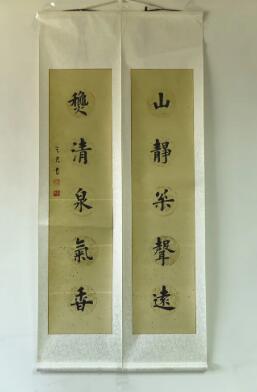 山靜枀聲遠
龝清泉氣香